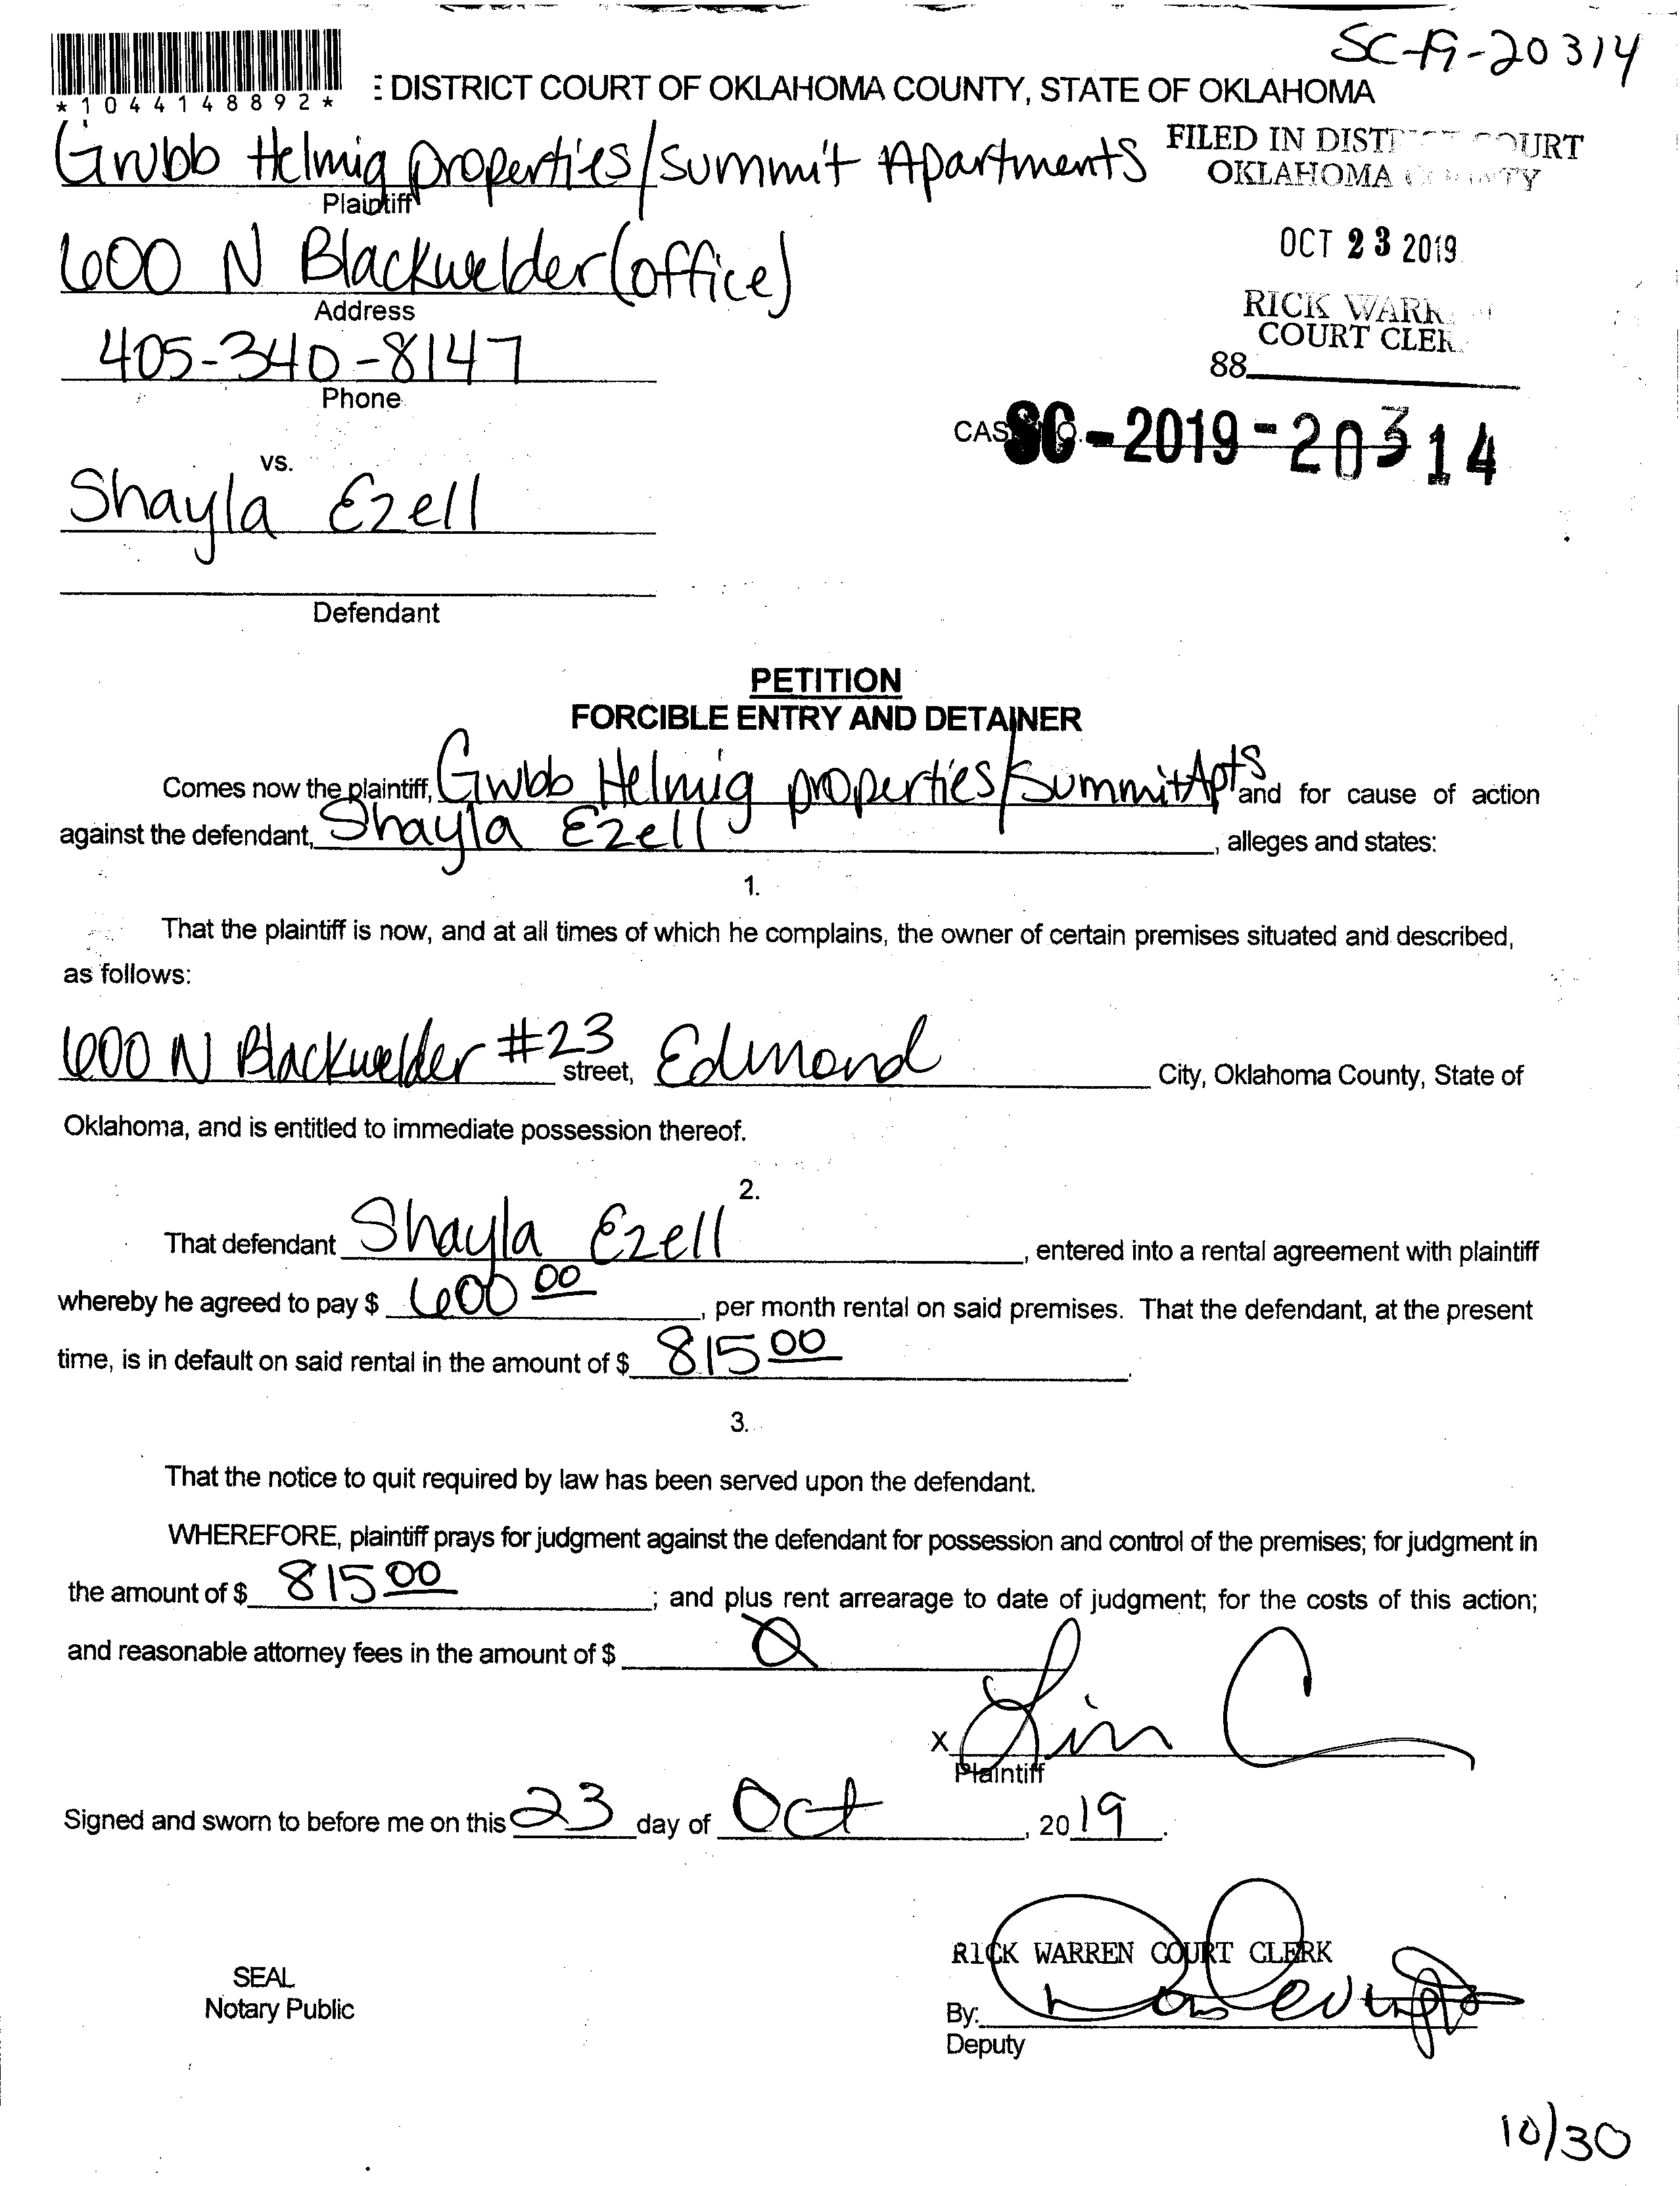 SC-19-20314
*1044148892*
: DISTRICT COURT OF OKLAHOMA COUNTY, STATE OF OKLAHOMA
Grubb Helmig properties/Summit Apartments
Plaintiff
FILED IN DIST COURT
OKLAHOMA COUNTY
600 N Blackwelder (office)
Address
OCT 23 2019
405-340-8147
Phone
RICK WARR
COURT CLER
88
CAS NO. SC-2019-20314
vs.
Shayla Ezell
Defendant
PETITION
FORCIBLE ENTRY AND DETAINER
Comes now the plaintiff, Grubb Helmig properties/Summit Apts and for cause of action
against the defendant, Shayla Ezell, alleges and states:
1.
That the plaintiff is now, and at all times of which he complains, the owner of certain premises situated and described,
as follows:
600 N Blackwelder #23 street, Edmond City, Oklahoma County, State of
Oklahoma, and is entitled to immediate possession thereof.
2.
That defendant Shayla Ezell, entered into a rental agreement with plaintiff
whereby he agreed to pay $ 600 00, per month rental on said premises. That the defendant, at the present
time, is in default on said rental in the amount of $ 815 00.
3.
That the notice to quit required by law has been served upon the defendant.
WHEREFORE, plaintiff prays for judgment against the defendant for possession and control of the premises; for judgment in
the amount of $ 815 00; and plus rent arrearage to date of judgment; for the costs of this action;
and reasonable attorney fees in the amount of $ 0
X
Plaintiff
Signed and sworn to before me on this 23 day of Oct, 2019.
SEAL
Notary Public
RICK WARREN COURT CLERK
By:
Deputy
10/30